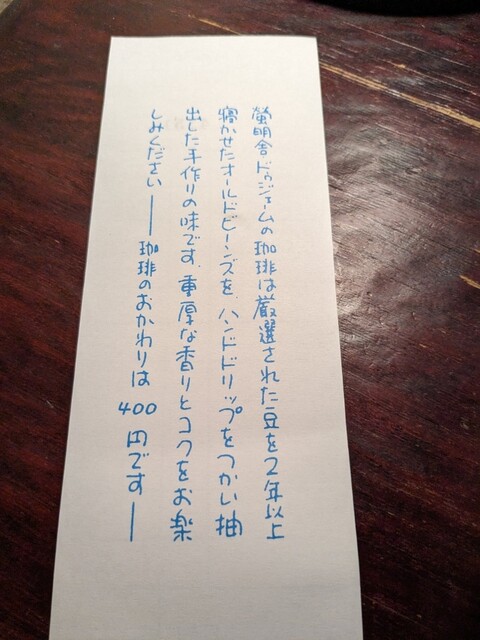 螢明舎ドゥジェームの珈琲は厳選された豆を2年以上
寝かせたオールドビーンズを、ハンドドリップをつかい抽
出した手作りの味です。重厚な香りとコクをお楽
しみください――珈琲のおかわりは 400 円です―